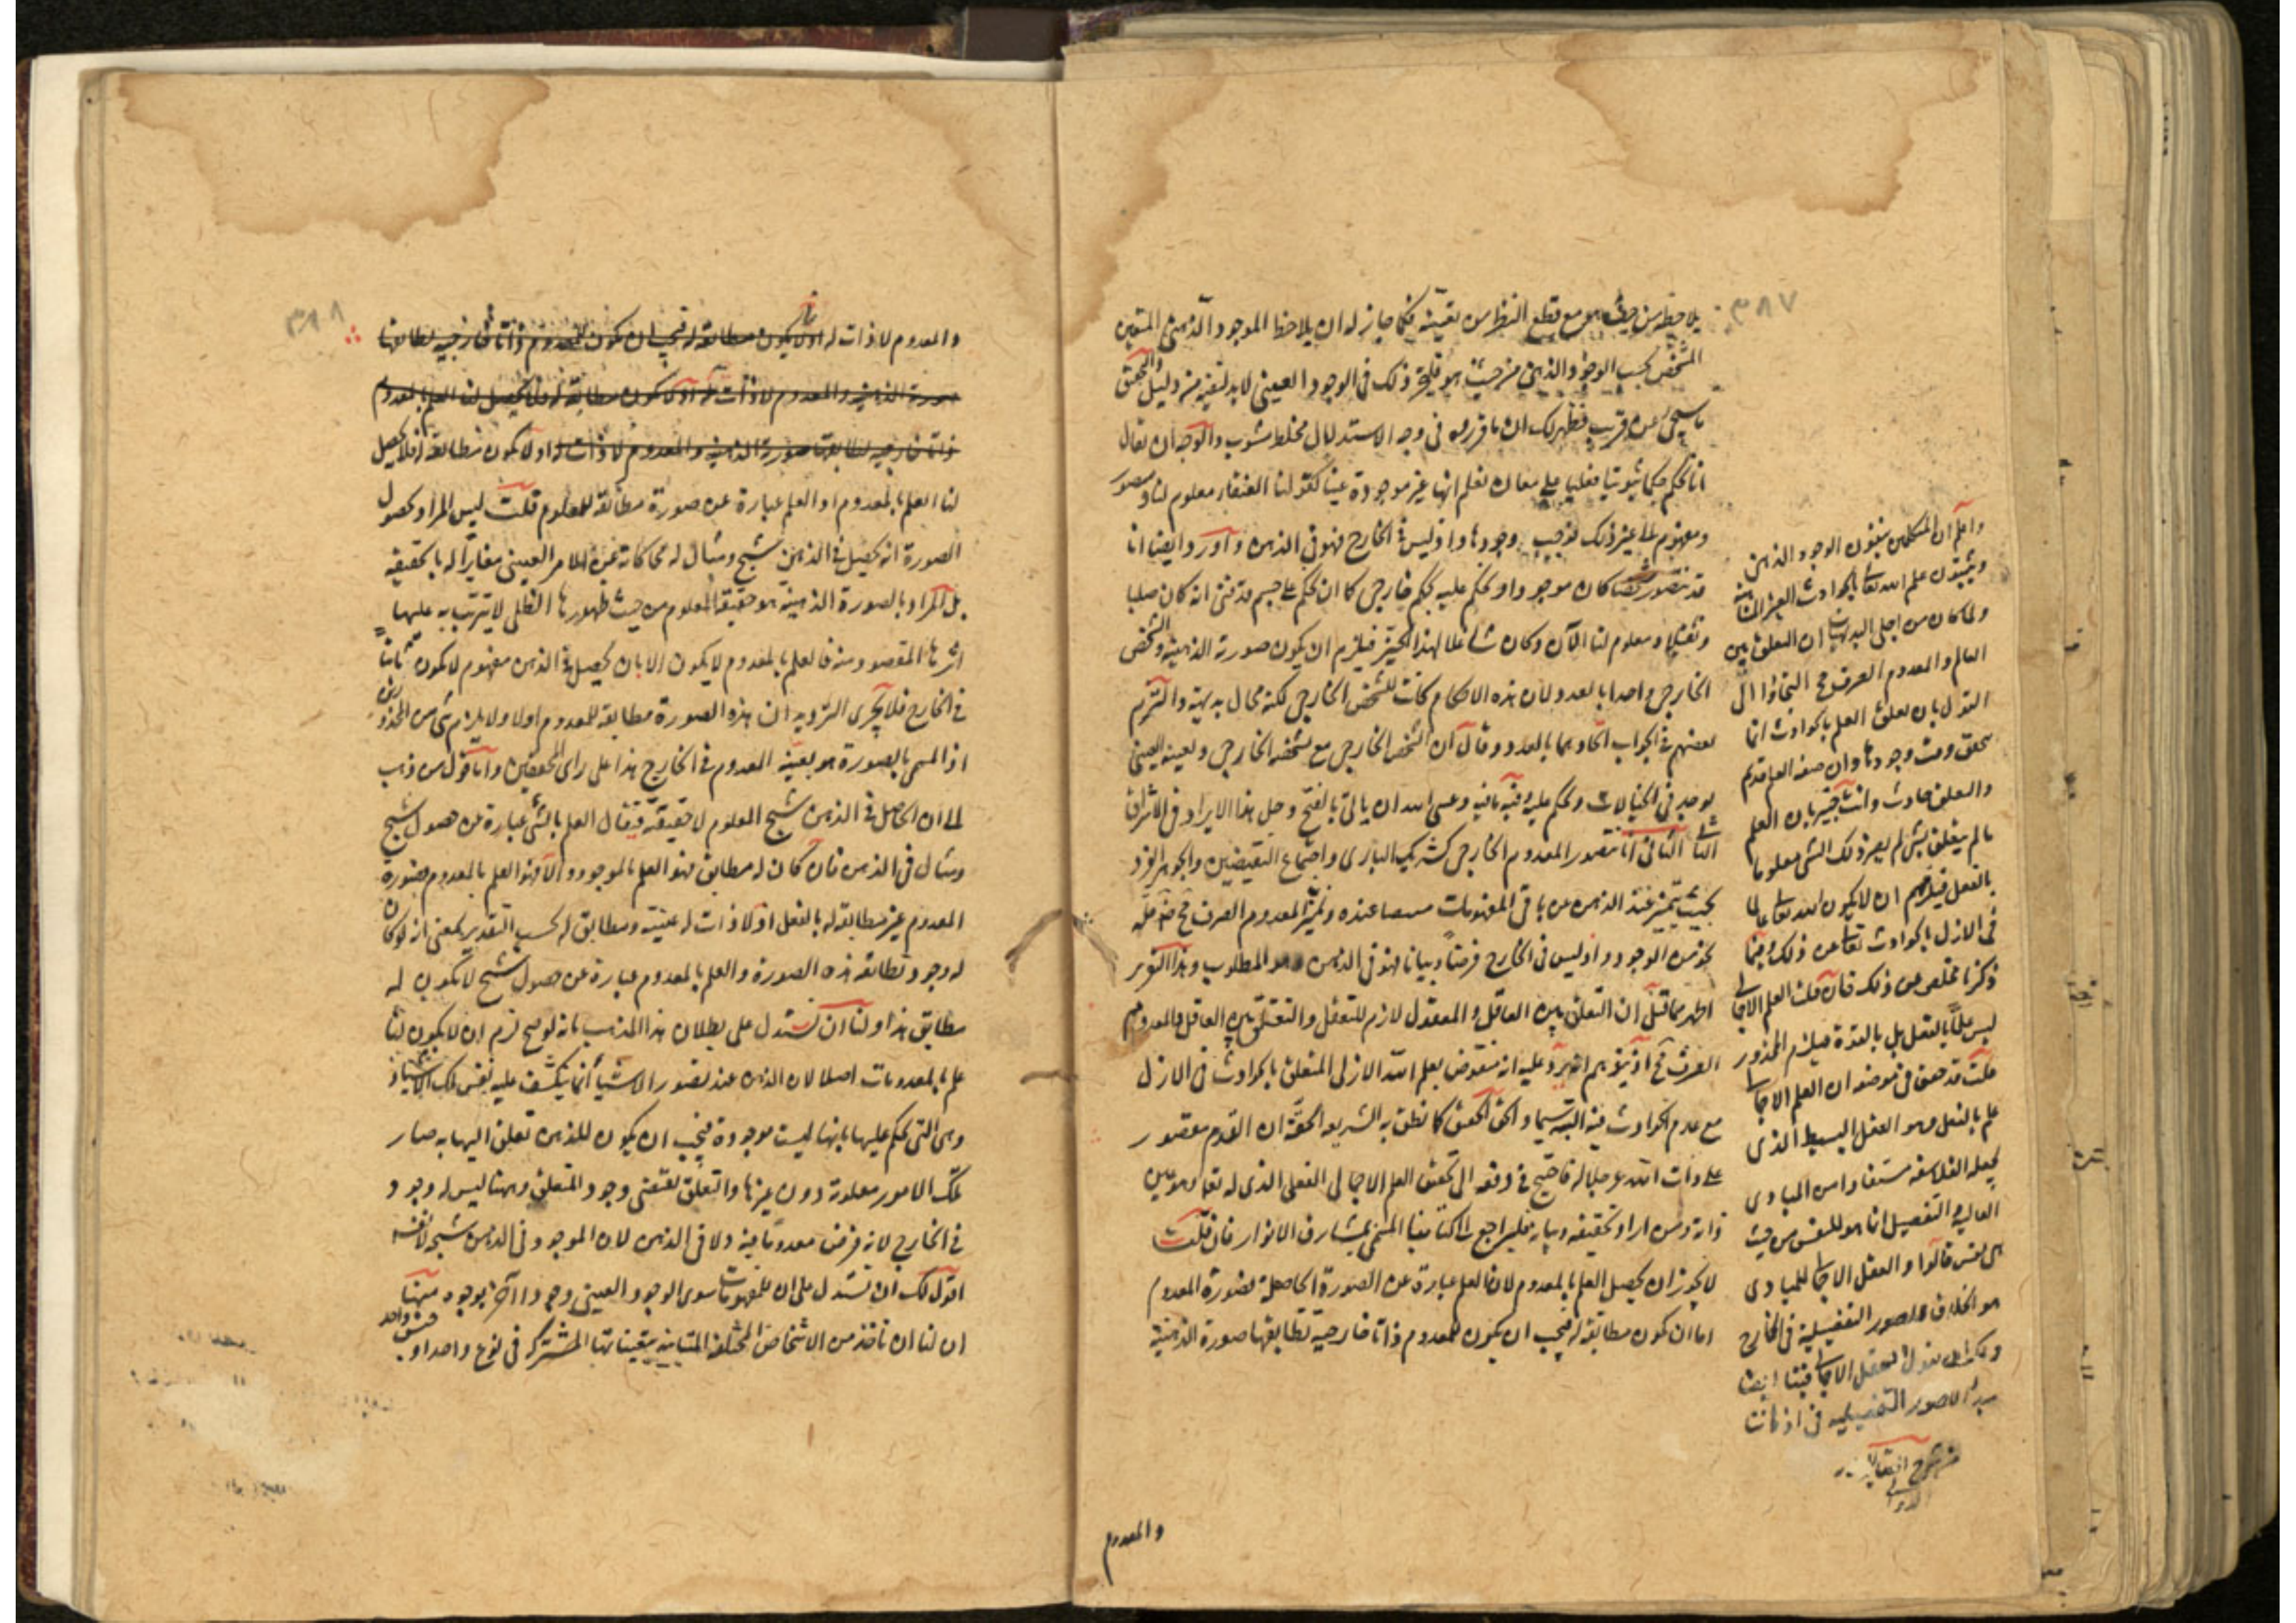 ٣٨٧
يلاحظه من حيث هو مع قطع النظر من تعينه فكما جاز له ان يلاحظ الموجود الذهني المتعين
المشخص بحسب الوجود الذهني من حيث هو فليجز ذلك في الوجود العيني لا بد لنفيه من دليل والتحقيق
ما سيجئ عن قريب فظهر لك ان ما قرروه في وجه الاستدلال مخلط مشوب والوجه ان يقال
انا نحكم حكما ثبوتيا عقليا على معان نعلم انها غير موجودة عينا كقولنا العنقاء معلوم لنا ومتصور
ومفهوم الى غير ذلك فوجب وجودها واذ ليس في الخارج فهو في الذهن واورد وايضا انا
قد نتصور شخصا كان موجودا ونحكم عليه بحكم خارجي كما ان نحكم على جسم قد فنى انه كان صلبا
وثقيلا ومعلوم لنا الآن وكان شاغلا لهذا الحيز فيلزم ان يكون صورته الذهنية والشخص
الخارجي واحدا بالعدد لان هذه الاحكام كانت للشخص الخارجي لكنه محال بديهة والتزم
بعضهم في الجواب اتحادهما بالعدد وقال ان الشخص الخارجي مع تشخصه الخارجي وتعينه العيني
يوجد في الخيالات ونحكم عليه وفيه ما فيه وعسى الله ان ياتي بالفتح وحل هذا الايراد في الاشراق
الثاني انا نتصور المعدوم الخارجي كشريك الباري واجتماع النقيضين والجوهر الفرد
بحيث يتميز عند الذهن عن باقي المفهومات عنده وتميز المعدوم الصرف مح فله
نحو من الوجود واذ ليس في الخارج فرضا وبيانا فهو في الذهن وهو المطلوب وهذا التقرير
اظهر مما قيل ان التعلق بين العاقل والمعقول لازم للتعقل والتعلق بين العاقل والمعدوم
الصرف مح اذ يرد عليه انه منقوض بعلم الله الازلي المتعلق بالحوادث في الازل
مع عدم الحوادث فيه البتة والحق كما نطق به الشريعة الحقة ان القدم مقصور
على ذات الله عز جلاله فاحتيج في دفعه الى تحقق العلم الاجمالي الفعلي الذي له تعالى وهو عين
ذاته ومن اراد تحقيقه وبيانه فليراجع الى كتابنا المسمى بمشارق الانوار فان قلت
لا يجوز ان يحصل العلم بالمعدوم لان العلم عبارة عن الصورة الحاصلة فصورة المعدوم
اما ان يكون مطابقة له فيجب ان يكون للمعدوم ذاتا خارجية تطابقها صورة الذهنية
واعلم ان المتكلمين ينفون الوجود الذهني
ويثبتون علم الله تعالى بالحوادث الغير المتناهية
ولما كان من اجلى البديهيات ان التعلق بين
العالم والمعدوم الصرف مح التجاؤا الى
القول بان تعلق العلم بالحوادث انما
يتحقق وقت وجودها وان صفة العلم قديم
والتعلق حادث وانت خبير بان العلم
ما لم يتعلق بشئ لم يصر ذلك الشئ معلوما
بالفعل فيلزمهم ان لا يكون الله تعالى عالما
في الازل بالحوادث تعالى عن ذلك وفيما
ذكرنا مخلص عن ذلك فان قلت العلم الاجمالي
ليس علما بالفعل بل بالقوة فيلزم المحذور
قلت قد حقق في موضعه ان العلم الاجمالي
علم بالفعل وهو العقل البسيط الذي
يجعله الفلاسفة مستفادا من المبادي
العالية والتفصيل انما هو للنفس من حيث
هي نفس قالوا والعقل الاجمالي للمبادي
هو الخلاق للصور التفصيلية في الخارج
العقل الاجمالي فينا ايضا
مبدأ لصور التفصيلية في اذهاننا
من شرح العقائد
للدواني
والمعدوم
٣٨٨
والمعدوم لا ذات له اولا يكون مطابقة له فيجب ان يكون للمعدوم ذاتا خارجية تطابقها
صورة الذهنية والمعدوم لا ذات له اولا يكون مطابقة له فلا يحصل لنا العلم بالمعدوم
ذاتا خارجية تطابقها صورة الذهنية والمعدوم لا ذات له اولا يكون مطابقة له فلا يحصل
لنا العلم بالمعدوم اذ العلم عبارة عن صورة مطابقة للمعلوم قلت ليس المراد بحصول
الصورة انه يحصل في الذهن شبح ومثال له محاكاة عن الامر العيني مغايرا له بالحقيقة
بل المراد بالصورة الذهنية هو حقيقة المعلوم من حيث ظهورها الظلي لا يترتب به عليها
اثرها المقصود منه فالعلم بالمعدوم لا يكون الا بان يحصل في الذهن مفهوم لا يكون ثابتا
في الخارج فلا يجرى الترديد ان هذه الصورة مطابقة للمعدوم اولا ولا يلزم شئ من المحذورين
اذ المسمى بالصورة هو بعينه المعدوم في الخارج هذا على راى المحققين واما قول من ذهب
الى ان الحاصل في الذهن شبح المعلوم لا حقيقته فيقال العلم بالشئ عبارة عن حصول شبح
ومثال في الذهن فان كان له مطابق فهو العلم بالموجود والا فهو العلم بالمعدوم فصورة
المعدوم غير مطابقة له بالفعل اذ لا ذات له عينية ومطابق له بحسب التقدير بمعنى انه لو كان
له وجود تطابقه هذه الصورة والعلم بالمعدوم عبارة عن حصول شبح لا يكون له
مطابق هذا ولنا ان نستدل على بطلان هذا المذهب بانه لو صح لزم ان لا يكون لنا
علم بالمعدومات اصلا لان الذهن عند تصور الاشيا انما ينكشف عليه نفس تلك الاشياء
وهي التي تحكم عليها بانها ليست موجودة فيجب ان يكون للذهن تعلق اليها به صار
تلك الامور معلومة دون غيرها والتعلق يقتضي وجود المتعلق وههنا ليس له وجود
في الخارج لانه فرض معدوما فيه ولا في الذهن لان الموجود في الذهن شبحه لا نفسه
اقول لك ان تستدل على ان للمفهومات سوى الوجود العيني وجودا آخر بوجوه منها
ان لنا ان ناخذ من الاشخاص المختلفة المتباينة بتعيناتها المشتركة في نوع واحد او جنس واحد